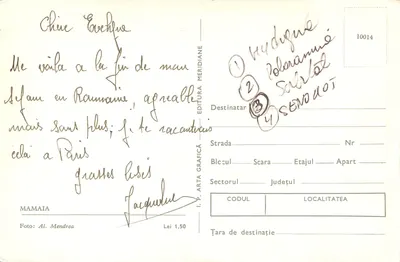 Chère Evelyne
Me voila a la fin de mon
sejour en Roumanie, agreable
mais sans plus; je te raconterai
cela a Paris
grosses bises
Jacqueline
MAMAIA
Foto: Al. Mendrea
Lei 1,50
I. P. ARTA GRAFICĂ
EDITURA MERIDIANE
10014
1
2
3
4 SENDHOT
Destinatar
Strada Nr.
Blocul Scara Etajul Apart
Sectorul Județul
CODUL LOCALITATEA
Țara de destinație